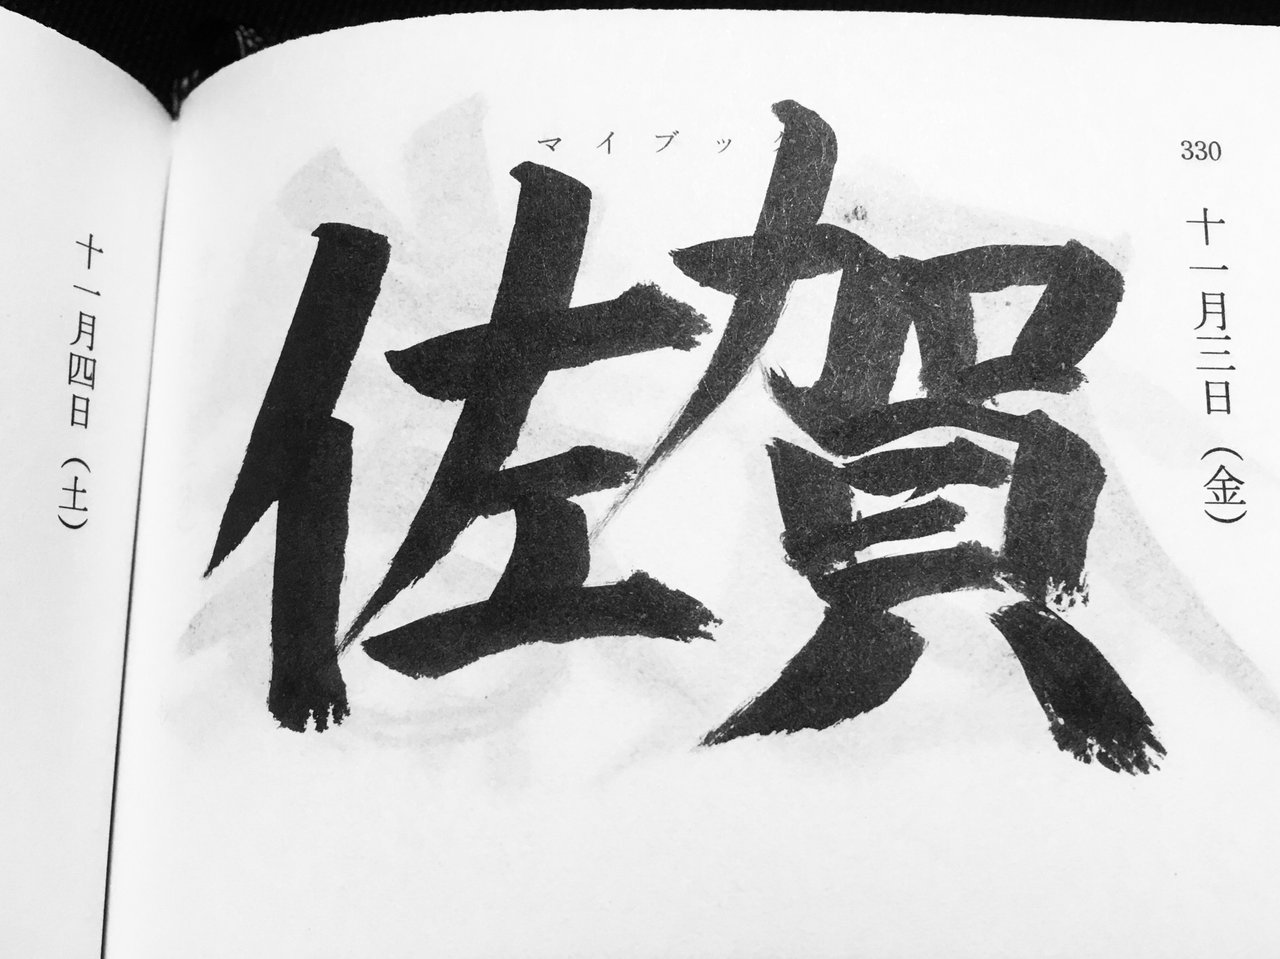 マイブック
330
十一月三日（金）
佐賀
十一月四日（土）